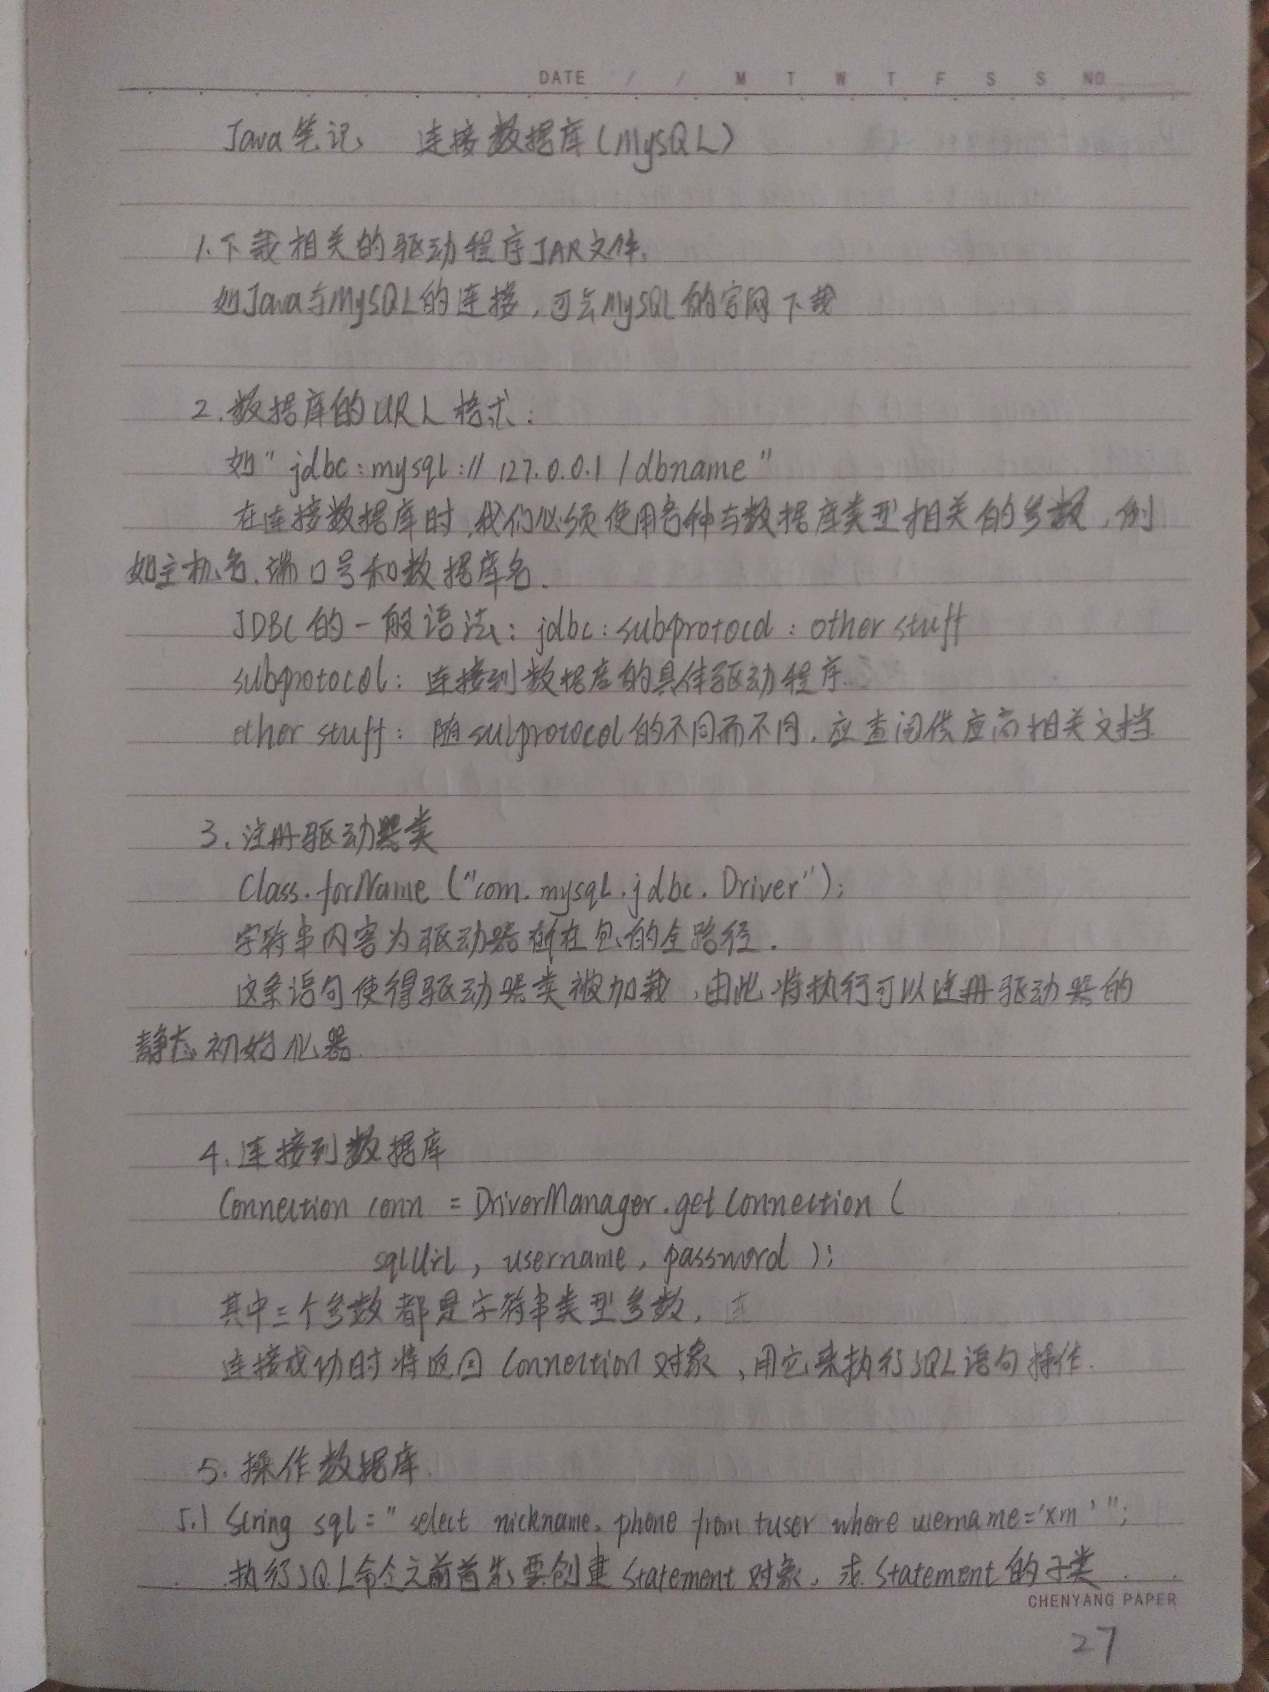 DATE / / M T W T F S S NO
Java笔记、 连接数据库(MySQL)
1.下载相关的驱动程序JAR文件.
如Java与MySQL的连接,可去MySQL的官网下载
2.数据库的URL格式:
如"jdbc:mysql://127.0.0.1/dbname"
在连接数据库时,我们必须使用各种与数据库类型相关的参数,例
如主机名、端口号和数据库名.
JDBC的一般语法:jdbc:subprotocol:other stuff
subprotocol:连接到数据库的具体驱动程序.
other stuff:随subprotocol的不同而不同,应查阅供应商相关文档
3、注册驱动器类
Class.forName("com.mysql.jdbc.Driver");
字符串内容为驱动器所在包的全路径.
这条语句使得驱动器类被加载,由此将执行可以注册驱动器的
静态初始化器.
4.连接到数据库
Connection conn = DriverManager.getConnection(
sqlUrl, username, password);
其中三个参数都是字符串类型参数, 连
连接成功时将返回Connection对象,用它来执行SQL语句操作.
5.操作数据库.
5.1 String sql="select nickname, phone from tuser where username='xm'";
执行SQL命令之前首先要创建Statement对象,或Statement的子类
CHENYANG PAPER
27